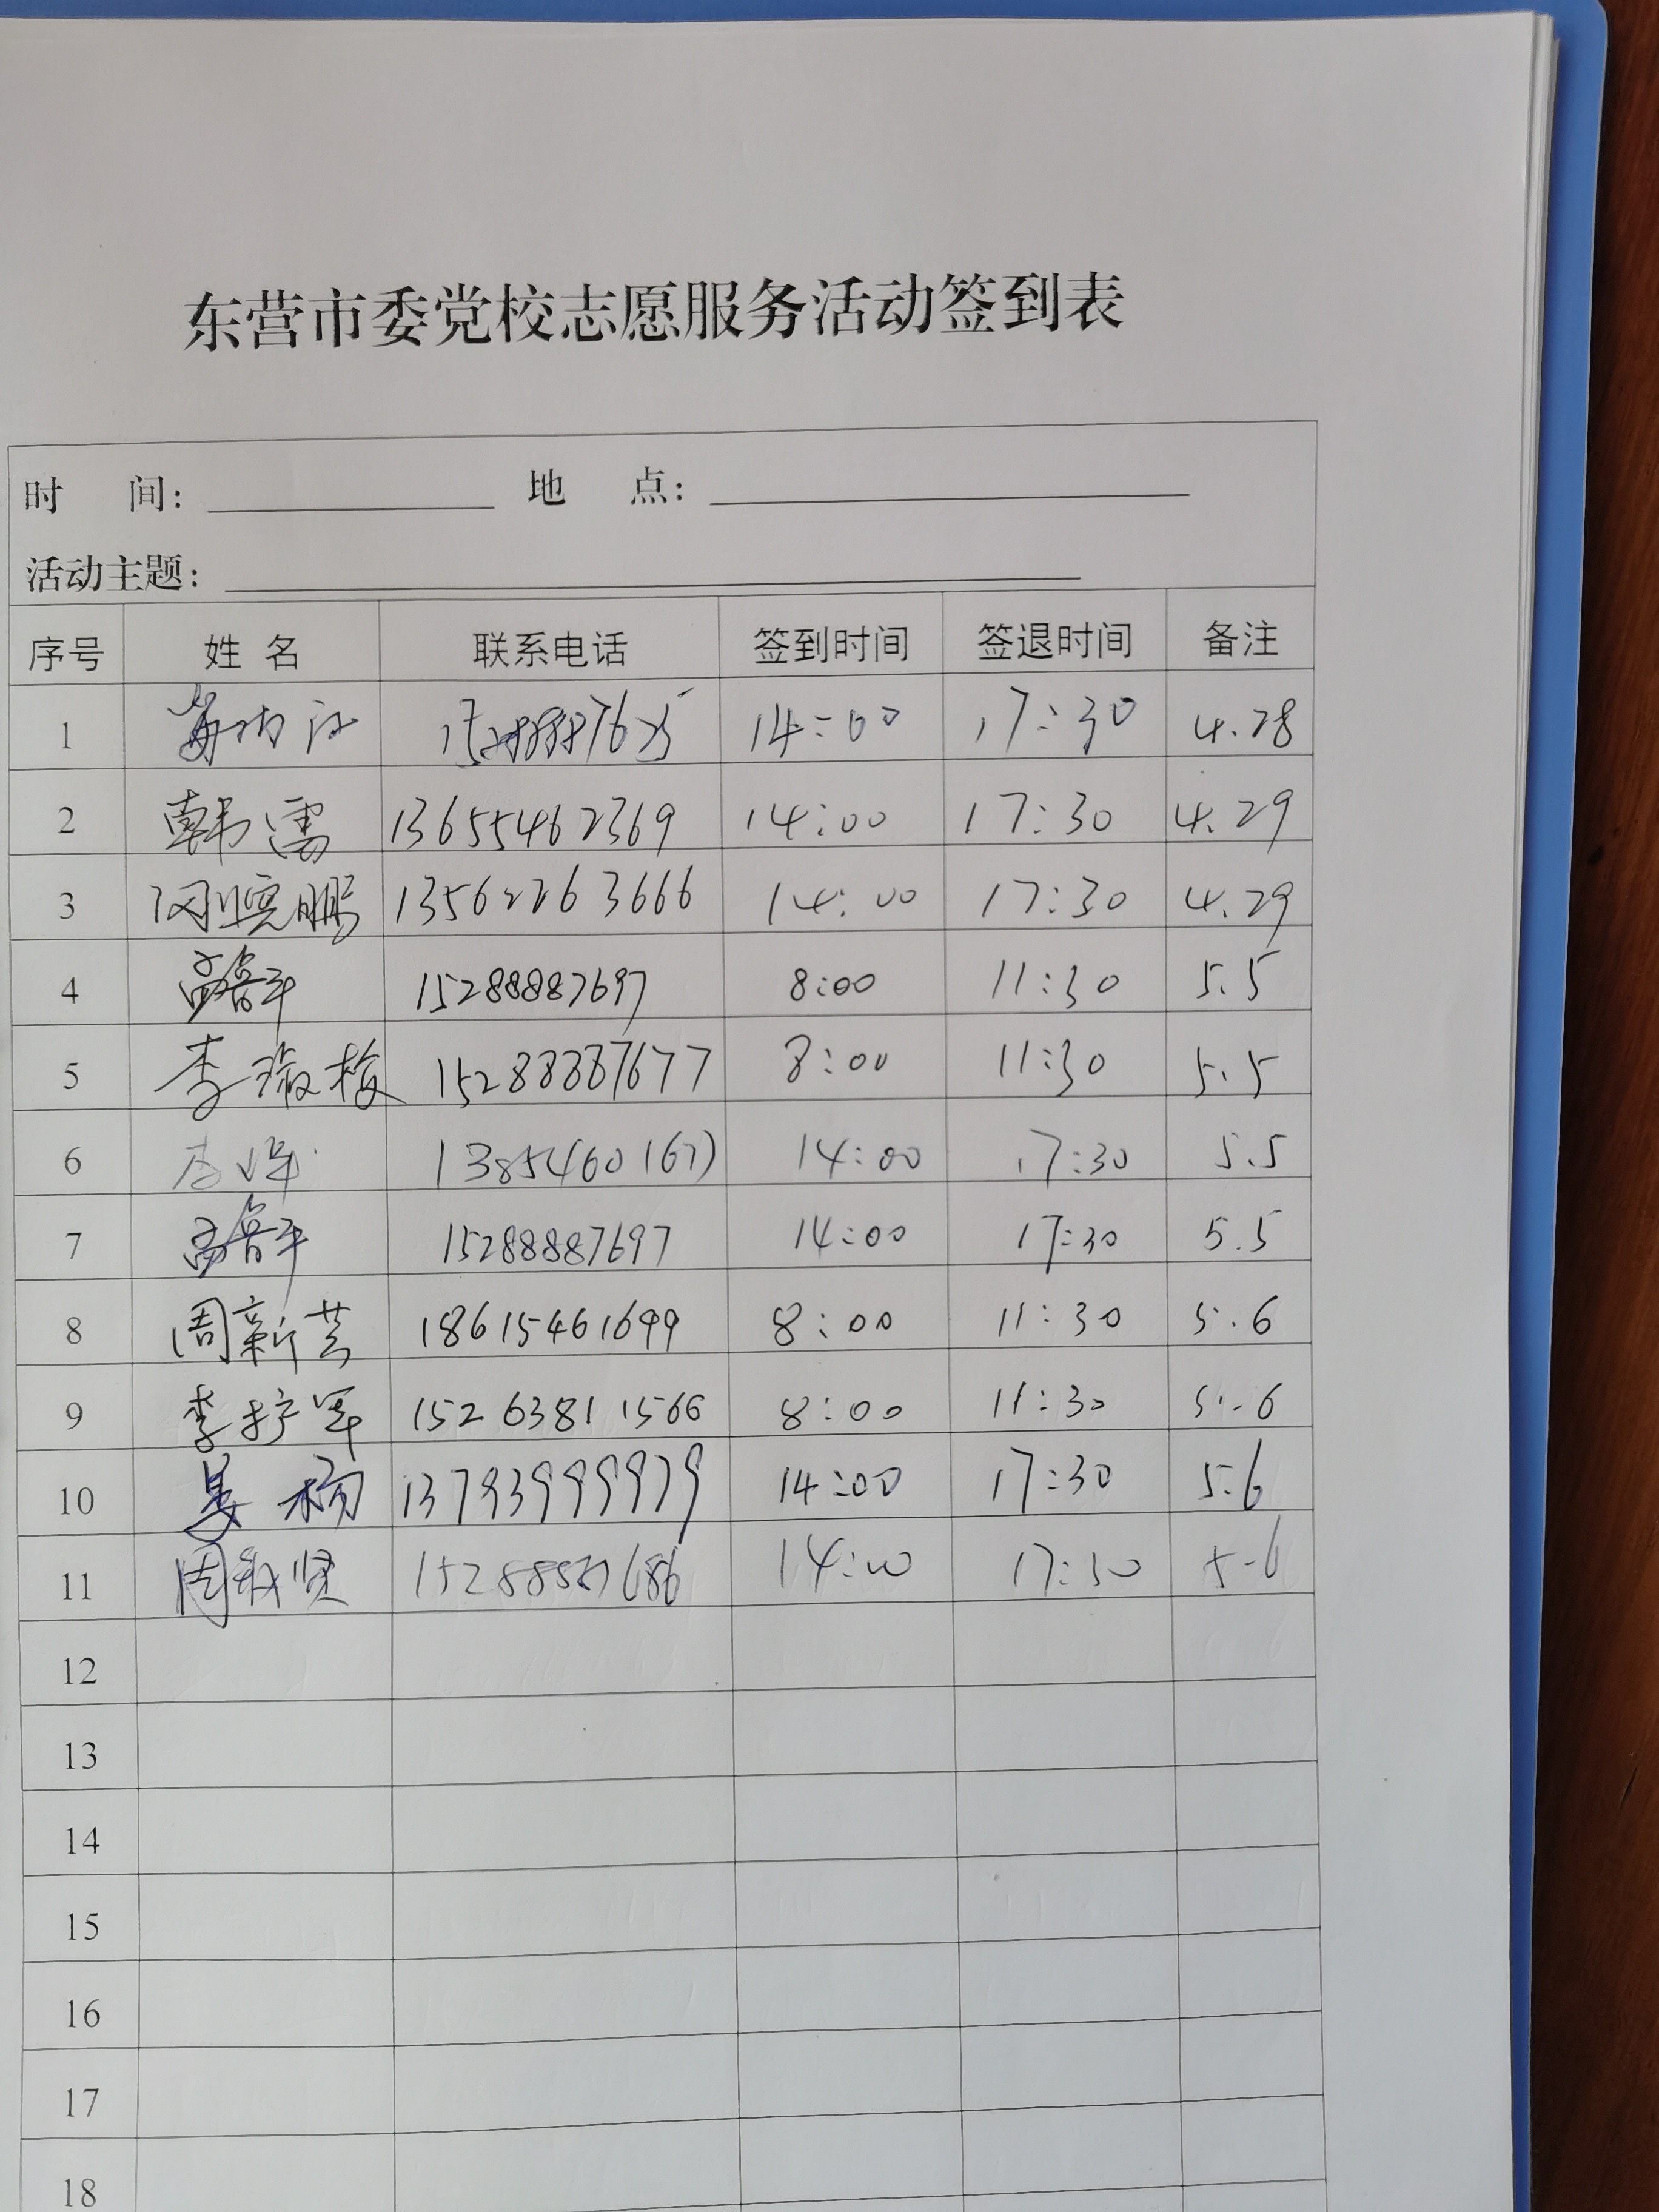 东营市委党校志愿服务活动签到表
时 间： 地 点：
活动主题：
序号 姓 名 联系电话 签到时间 签退时间 备注
1 14:00 17:30 4.28
2 韩雪 13655462369 14:00 17:30 4.29
3 13562263666 14:00 17:30 4.29
4 15288887697 8:00 11:30 5.5
5 李淑梅 15288887677 8:00 11:30 5.5
6 14:00 17:30 5.5
7 15288887697 14:00 17:30 5.5
8 周新芸 18615461699 8:00 11:30 5.6
9 李护军 15263811566 8:00 11:30 5.6
10 姜杨 13793999979 14:00 17:30 5.6
11 周敬贤 15288887686 14:00 17:30 5.6
12
13
14
15
16
17
18